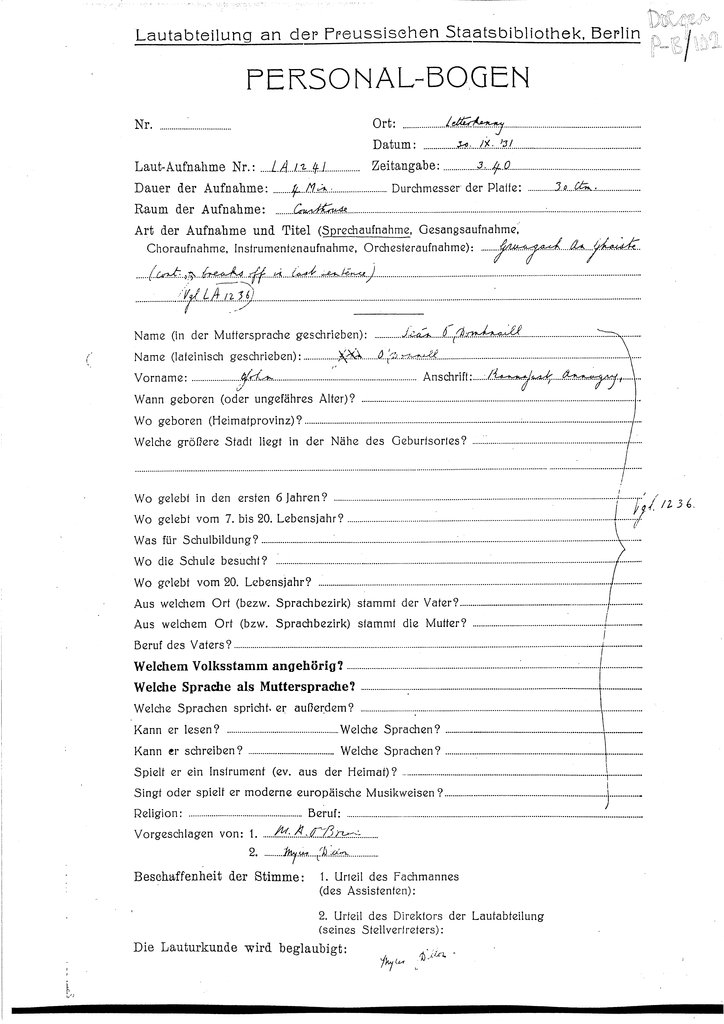 Doegen
P-B/102
Lautabteilung an der Preussischen Staatsbibliothek, Berlin
PERSONAL-BOGEN
Nr.
Ort: Letterkenny
Datum: 30. IX. '31
Laut-Aufnahme Nr.: LA 1241 Zeitangabe: 3.40
Dauer der Aufnahme: 4 Min. Durchmesser der Platte: 30 Ctm.
Raum der Aufnahme: Courthouse
Art der Aufnahme und Titel (Sprechaufnahme, Gesangsaufnahme,
Choraufnahme, Instrumentenaufnahme, Orchesteraufnahme): Gruagach An Ghaiste
(cont., breaks off in last sentence)
(Vgl LA 1236)
Name (in der Muttersprache geschrieben): Seán Ó Domhnaill
Name (lateinisch geschrieben): O'Donnell
Vorname: John Anschrift: Rannafast, Annagry,
Wann geboren (oder ungefähres Alter)?
Wo geboren (Heimatprovinz)?
Welche größere Stadt liegt in der Nähe des Geburtsortes?
Wo gelebt in den ersten 6 Jahren?
Vgl. 1236.
Wo gelebt vom 7. bis 20. Lebensjahr?
Was für Schulbildung?
Wo die Schule besucht?
Wo gelebt vom 20. Lebensjahr?
Aus welchem Ort (bezw. Sprachbezirk) stammt der Vater?
Aus welchem Ort (bzw. Sprachbezirk) stammt die Mutter?
Beruf des Vaters?
Welchem Volksstamm angehörig?
Welche Sprache als Muttersprache?
Welche Sprachen spricht er außerdem?
Kann er lesen? Welche Sprachen?
Kann er schreiben? Welche Sprachen?
Spielt er ein Instrument (ev. aus der Heimat)?
Singt oder spielt er moderne europäische Musikweisen?
Religion: Beruf:
Vorgeschlagen von: 1. M. A. O'Brien
2. Myles Dillon
Beschaffenheit der Stimme: 1. Urteil des Fachmannes
(des Assistenten):
2. Urteil des Direktors der Lautabteilung
(seines Stellvertreters):
Die Lauturkunde wird beglaubigt:
Myles Dillon